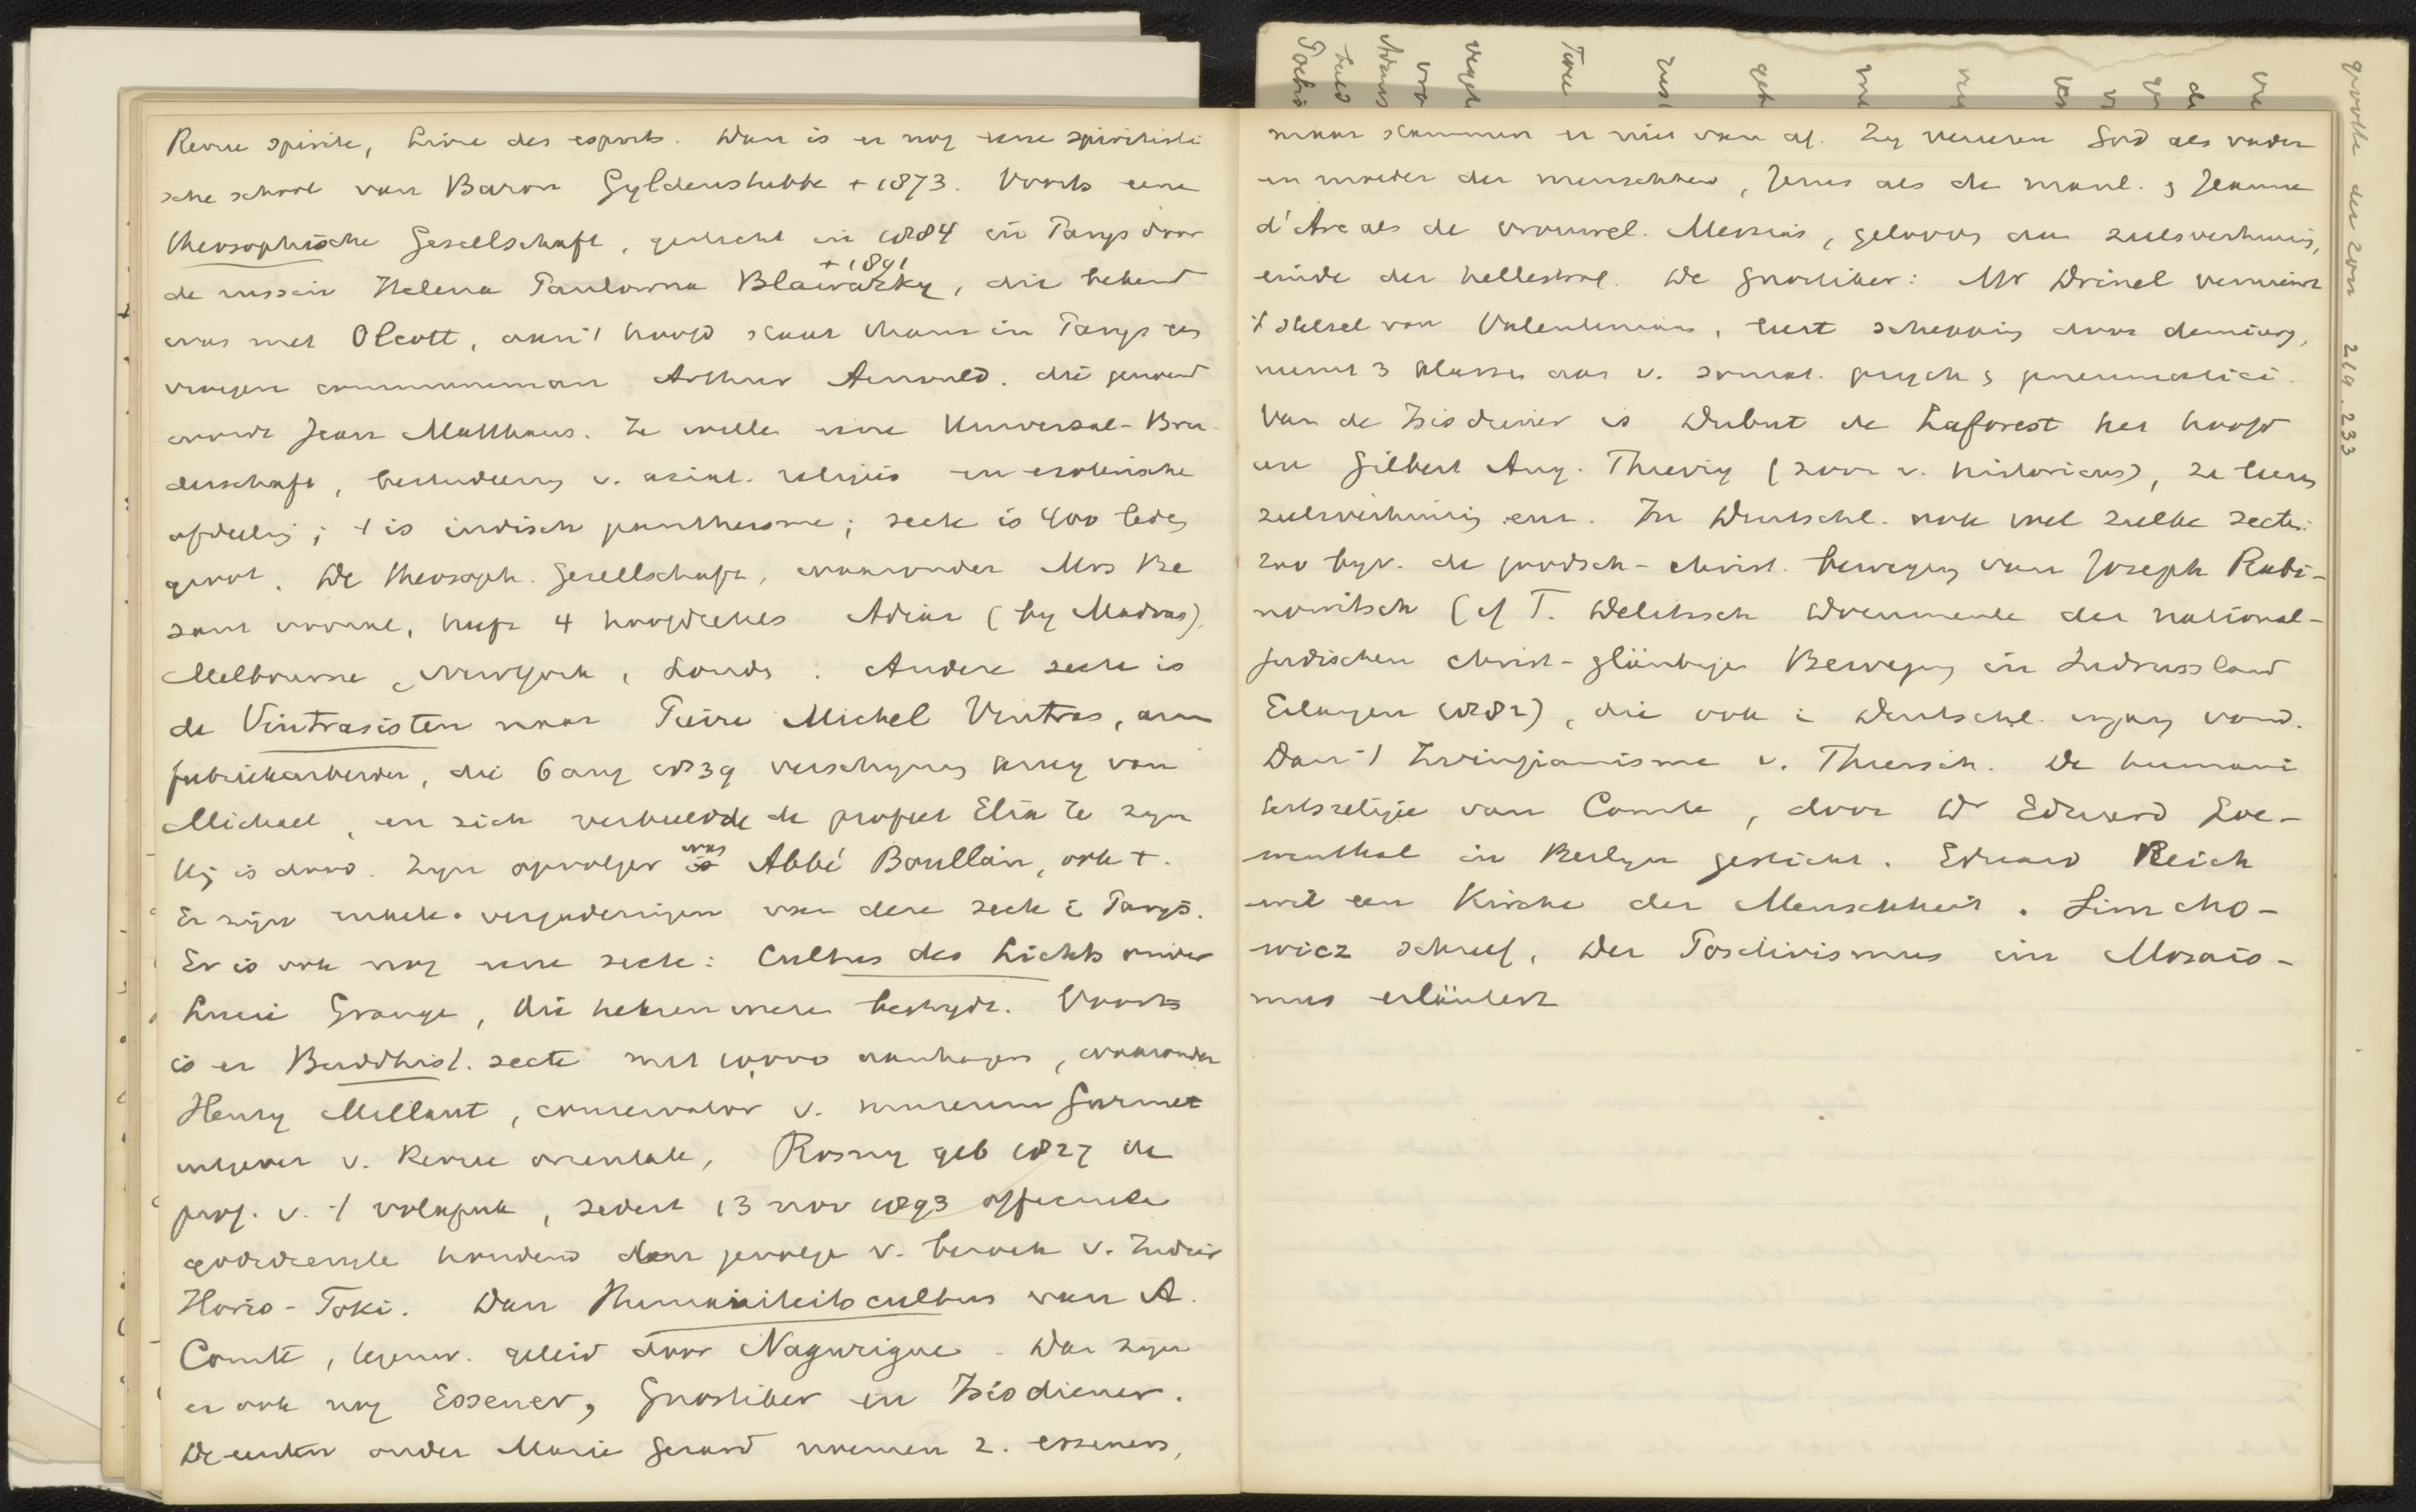 Revue spirite, Livre des esprits. Dan is er nog eene spiritisti
sche school van Baron Gyldenstubbe + 1873. Voorts eene
theosophische Gesellschaft, gesticht in 1884 in Parys door
+ 1891
de russin Helena Paulowna Blawatzky, die bekend
was met Olcott, aan 't hoofd staat thans in Parys de
vroegere communeman Arthur Arnould. die genoemd
wordt Jean Matthaus. Ze willen eene Universal-Bru-
derschaft, bestudeering v. asiat. religies en esoterische
afdeeling; 't is indisch pantheisme; secte is 400 leden
groot. De theosoph. Gesellschaft, waaronder Mrs Be
sant vooral, heeft 4 hoofdzetels Adiar (by Madras),
Melbourne, Newyork, Londen. Andere secte is
de Vintrasisten naar Pierre Michel Vintras, arm
fabriekarbeider, die 6 aug 1839 verschyning kreeg van
Michael, en zich verbeeldde de profeet Elia te zyn
Hij is dood. Zyn opvolger was Abbé Boullan, ook +.
Er zijn enkele vergaderingen van deze secte i Parys.
Er is ook nog eene secte: Cultus des Lichts onder
Lucie Grange, die het bestrydt. Voorts
is er Buddhist. secte met 10,000 aanhangers, waaronder
Henry Millant, conservator v. museum Guimet
uitgever v. Revue orientale, Rosny geb 1827 de
prof. v. 't volapuk, sedert 13 nov 1893 officieele
godsdienst houdend door gevolge v. bezoek v. Indier
Horio-Toki. Dan Humaniteitscultus van A.
Comte, tegenw. geleid door Nagurigue. Dan zyn
er ook nog Essener, Gnostiker en Isisdiener.
De eersten onder Marie Gerard noemen z. esseners,
maar stammen er niet van af. Zy vereeren God als vader
en moeder der menschheid, Jezus als de manl. & Jeanne
d'Arc als de vrouwel. Messias, gelooven aan zielsverhuiz,
einde der hellestraf. De Gnostiker: Mr Drinel vernieuwt
't stelsel van Valentinus, leert schepping door demiurg,
neemt 3 klassen aan v. somat. psych & pneumatici.
Van de Isisdiener is Dubut de Laforest het hoofd
en Gilbert Aug. Thierry (zoon v. historicus), ze leeren
zielsverhuizing enz. In Duitschl. ook veel zulke secten:
zoo byv. de joodsch-christ. beweging van Joseph Rabi-
nowitsch (cf F. Delitzsch Documente der national-
judischen christ-gläubigen Bewegung in Sudrussland
Erlangen 1882), die ook i Duitschl. ingang vond.
Dan 't Irvingianisme v. Thiersch. De humani
teitsreligie van Comte, door Dr Eduard Loe-
wenthal in Berlyn gesticht. Eduard Reich
wil een Kirche der Menschheit. Limcho-
wicz schreef, Der Positivismus im Mosais-
mus erläutert
der zon 219. 233